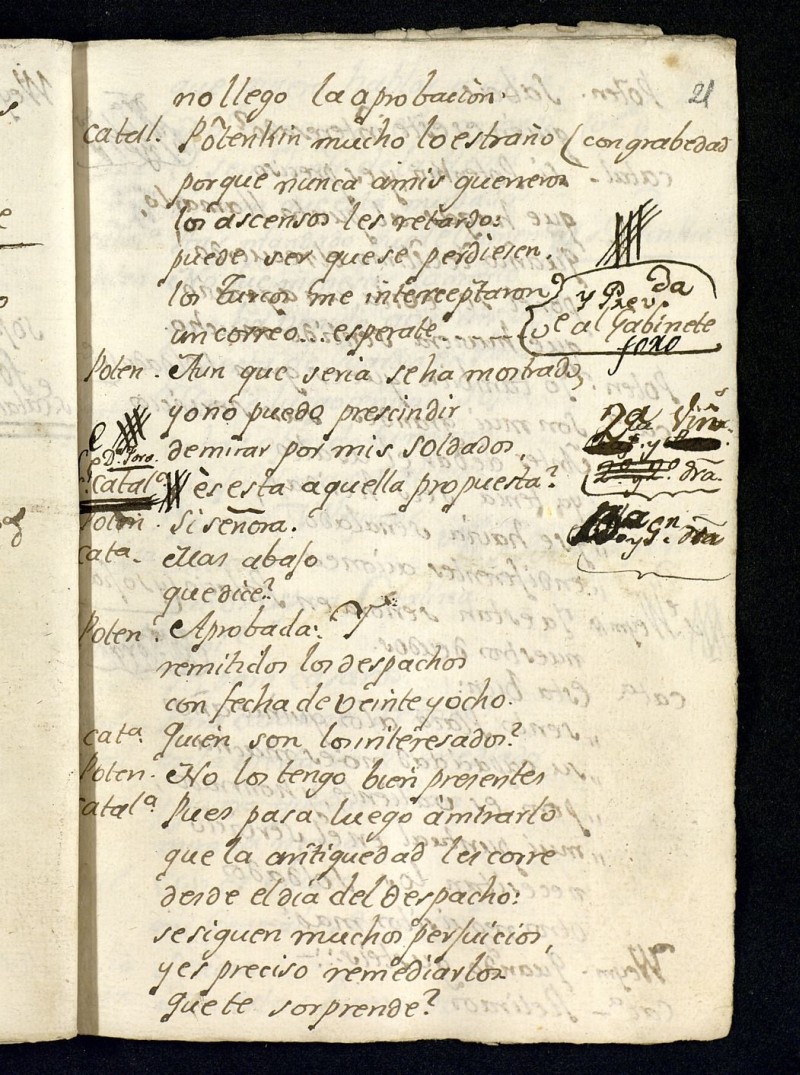 21
no llego la aprobaciòn.
Catal. Pôtenkin mucho lo estraño (con grabedad
porque nunca a mis guerreros
los ascensos les retardo:
puede ser que se perdiesen.
los Turcos me interceptaron
un correo... esperate.
y Prev. da
ve al Gabinete
foro
Poten. Aun que seria se ha mostrado,
yo no puedo prescindir
2ª
de mirar por mis soldados,
Dª Foro.
Catalª es esta aquella propuesta?
dra.
Poten. Si señora.
Cataª. Mas abajo
que dice?
Poten. Aprobada: Y
remitidos los despachos
con fecha de veinte y ocho.
Catª. Quien son los interesados?
Poten. No los tengo bien presentes
Catalª Pues pasa luego á mirarlo
que la antiguedad les corre
desde el dia del Despacho:
se siguen muchos perjuicios,
y es preciso remediarlos
Que te sorprende?